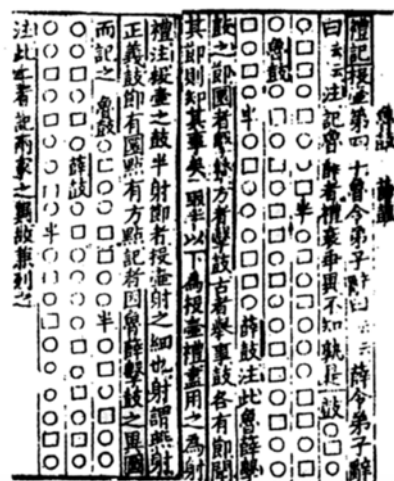 禮記投壺第四十魯令弟子辭曰云云薛令弟子辭
曰云云注記魯薛者禮衰乖異不知孰是 鼓
半
魯鼓
半
薛鼓注此魯薛擊
鼓之節圜者擊鼙方者擊鼓古者舉事鼓各有節聞
其節則知其事矣 取半以下為投壺禮盡用之為射
禮注投壺之鼓半射節者投壺射之細也射謂燕射
正義鼓節有圜點有方點記者因魯薛擊鼓之異圖
而記之 魯鼓
半
薛鼓
半
注此二者記兩家之異故兼列之